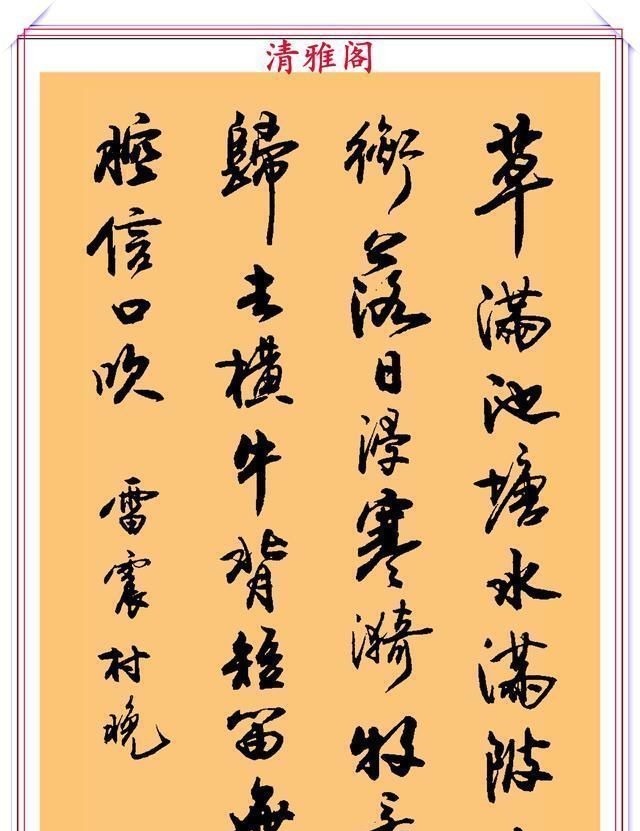 清雅阁
草满池塘水满陂
衔落日浸寒漪牧
歸去横牛背短笛無
腔信口吹
雷震村晚